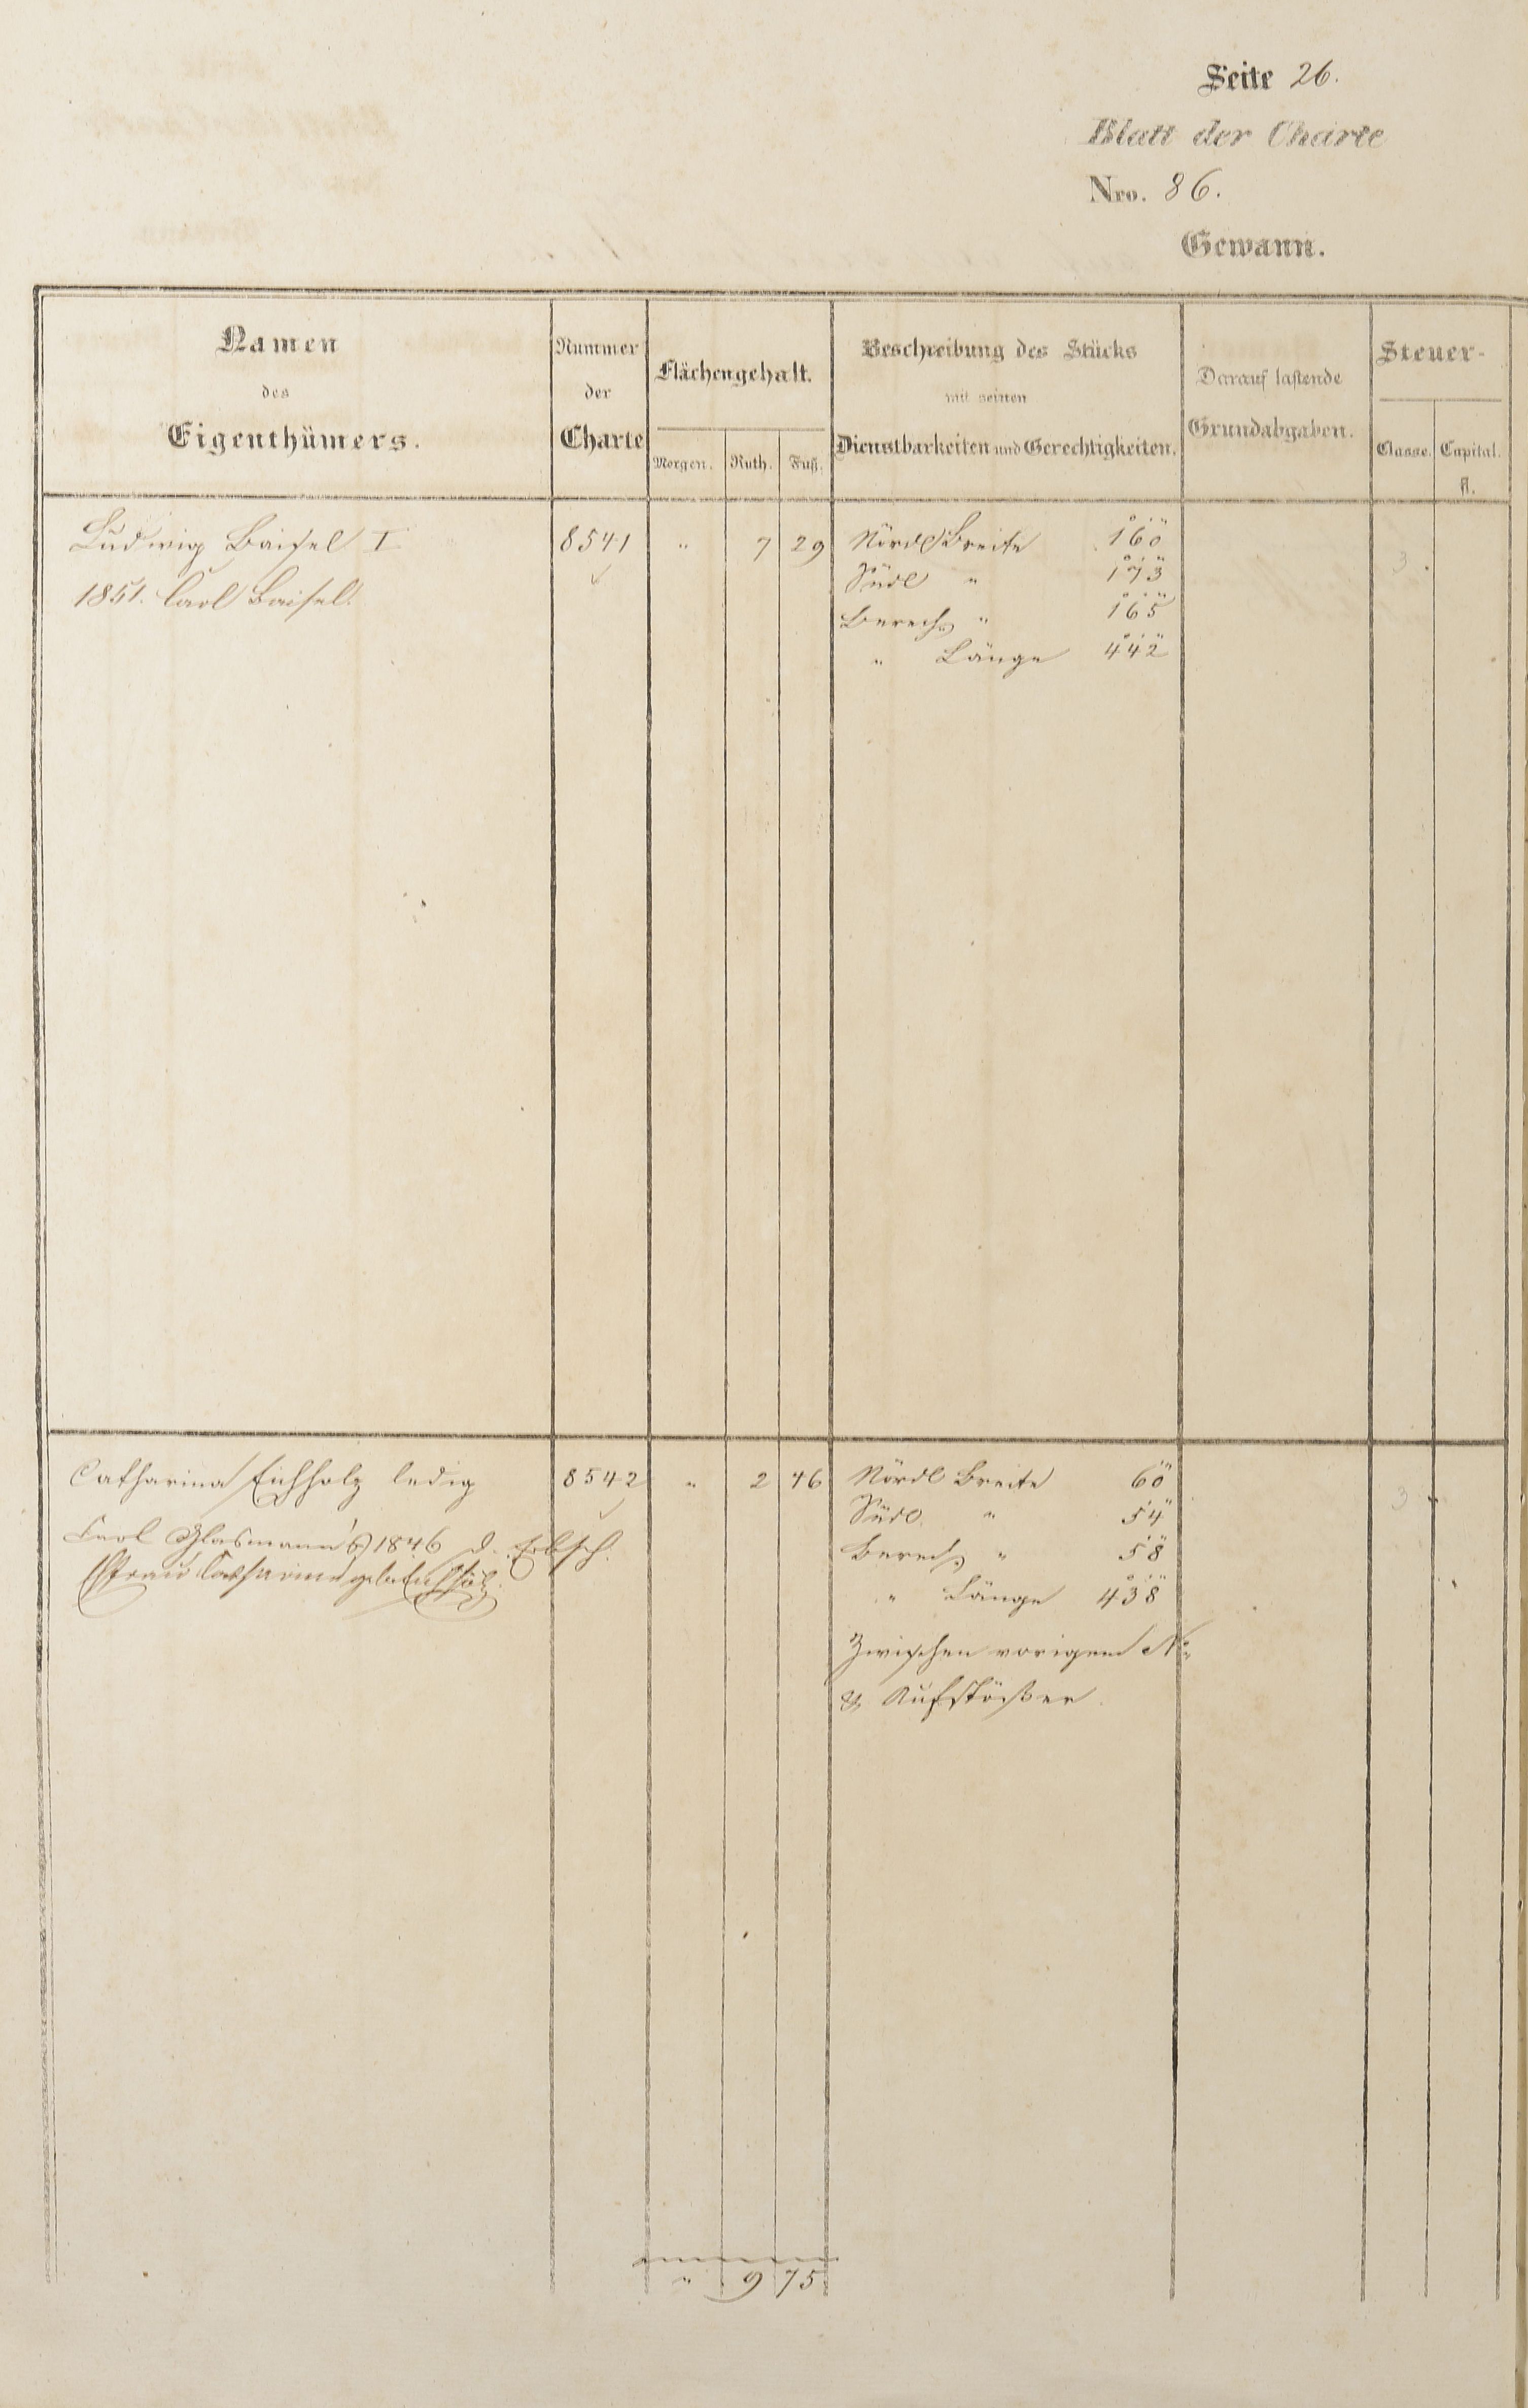 Seite 26.
Blatt der Charte
Nro. 86.
Gewann.
Namen
des
Eigenthümers.
Nummer
der
Charte
Flächengehalt.
Morgen. Ruth. Fuß.
Beschreibung des Stücks
mit seinen
Dienstbarkeiten und Gerechtigkeiten.
Darauf lastende
Grundabgaben.
Steuer-
Classe. Capital.
fl.
Ludwig Baisel I 8541 " 7 29 Nördl Breite 160 3.
1851. Carl Baisel.
Südl " 173
Berech " 165
" Länge 442
Catharina Eichholz ledig 8542 " 2 46 Nördl Breite 60 3
Carl Glasmann 1846 d. Erbsch.
Frau Catharina geb.
Südl. " 54
Berech " 58
" Länge 438
Zwischen vorigem No
& Aufstößer.
" 9 75